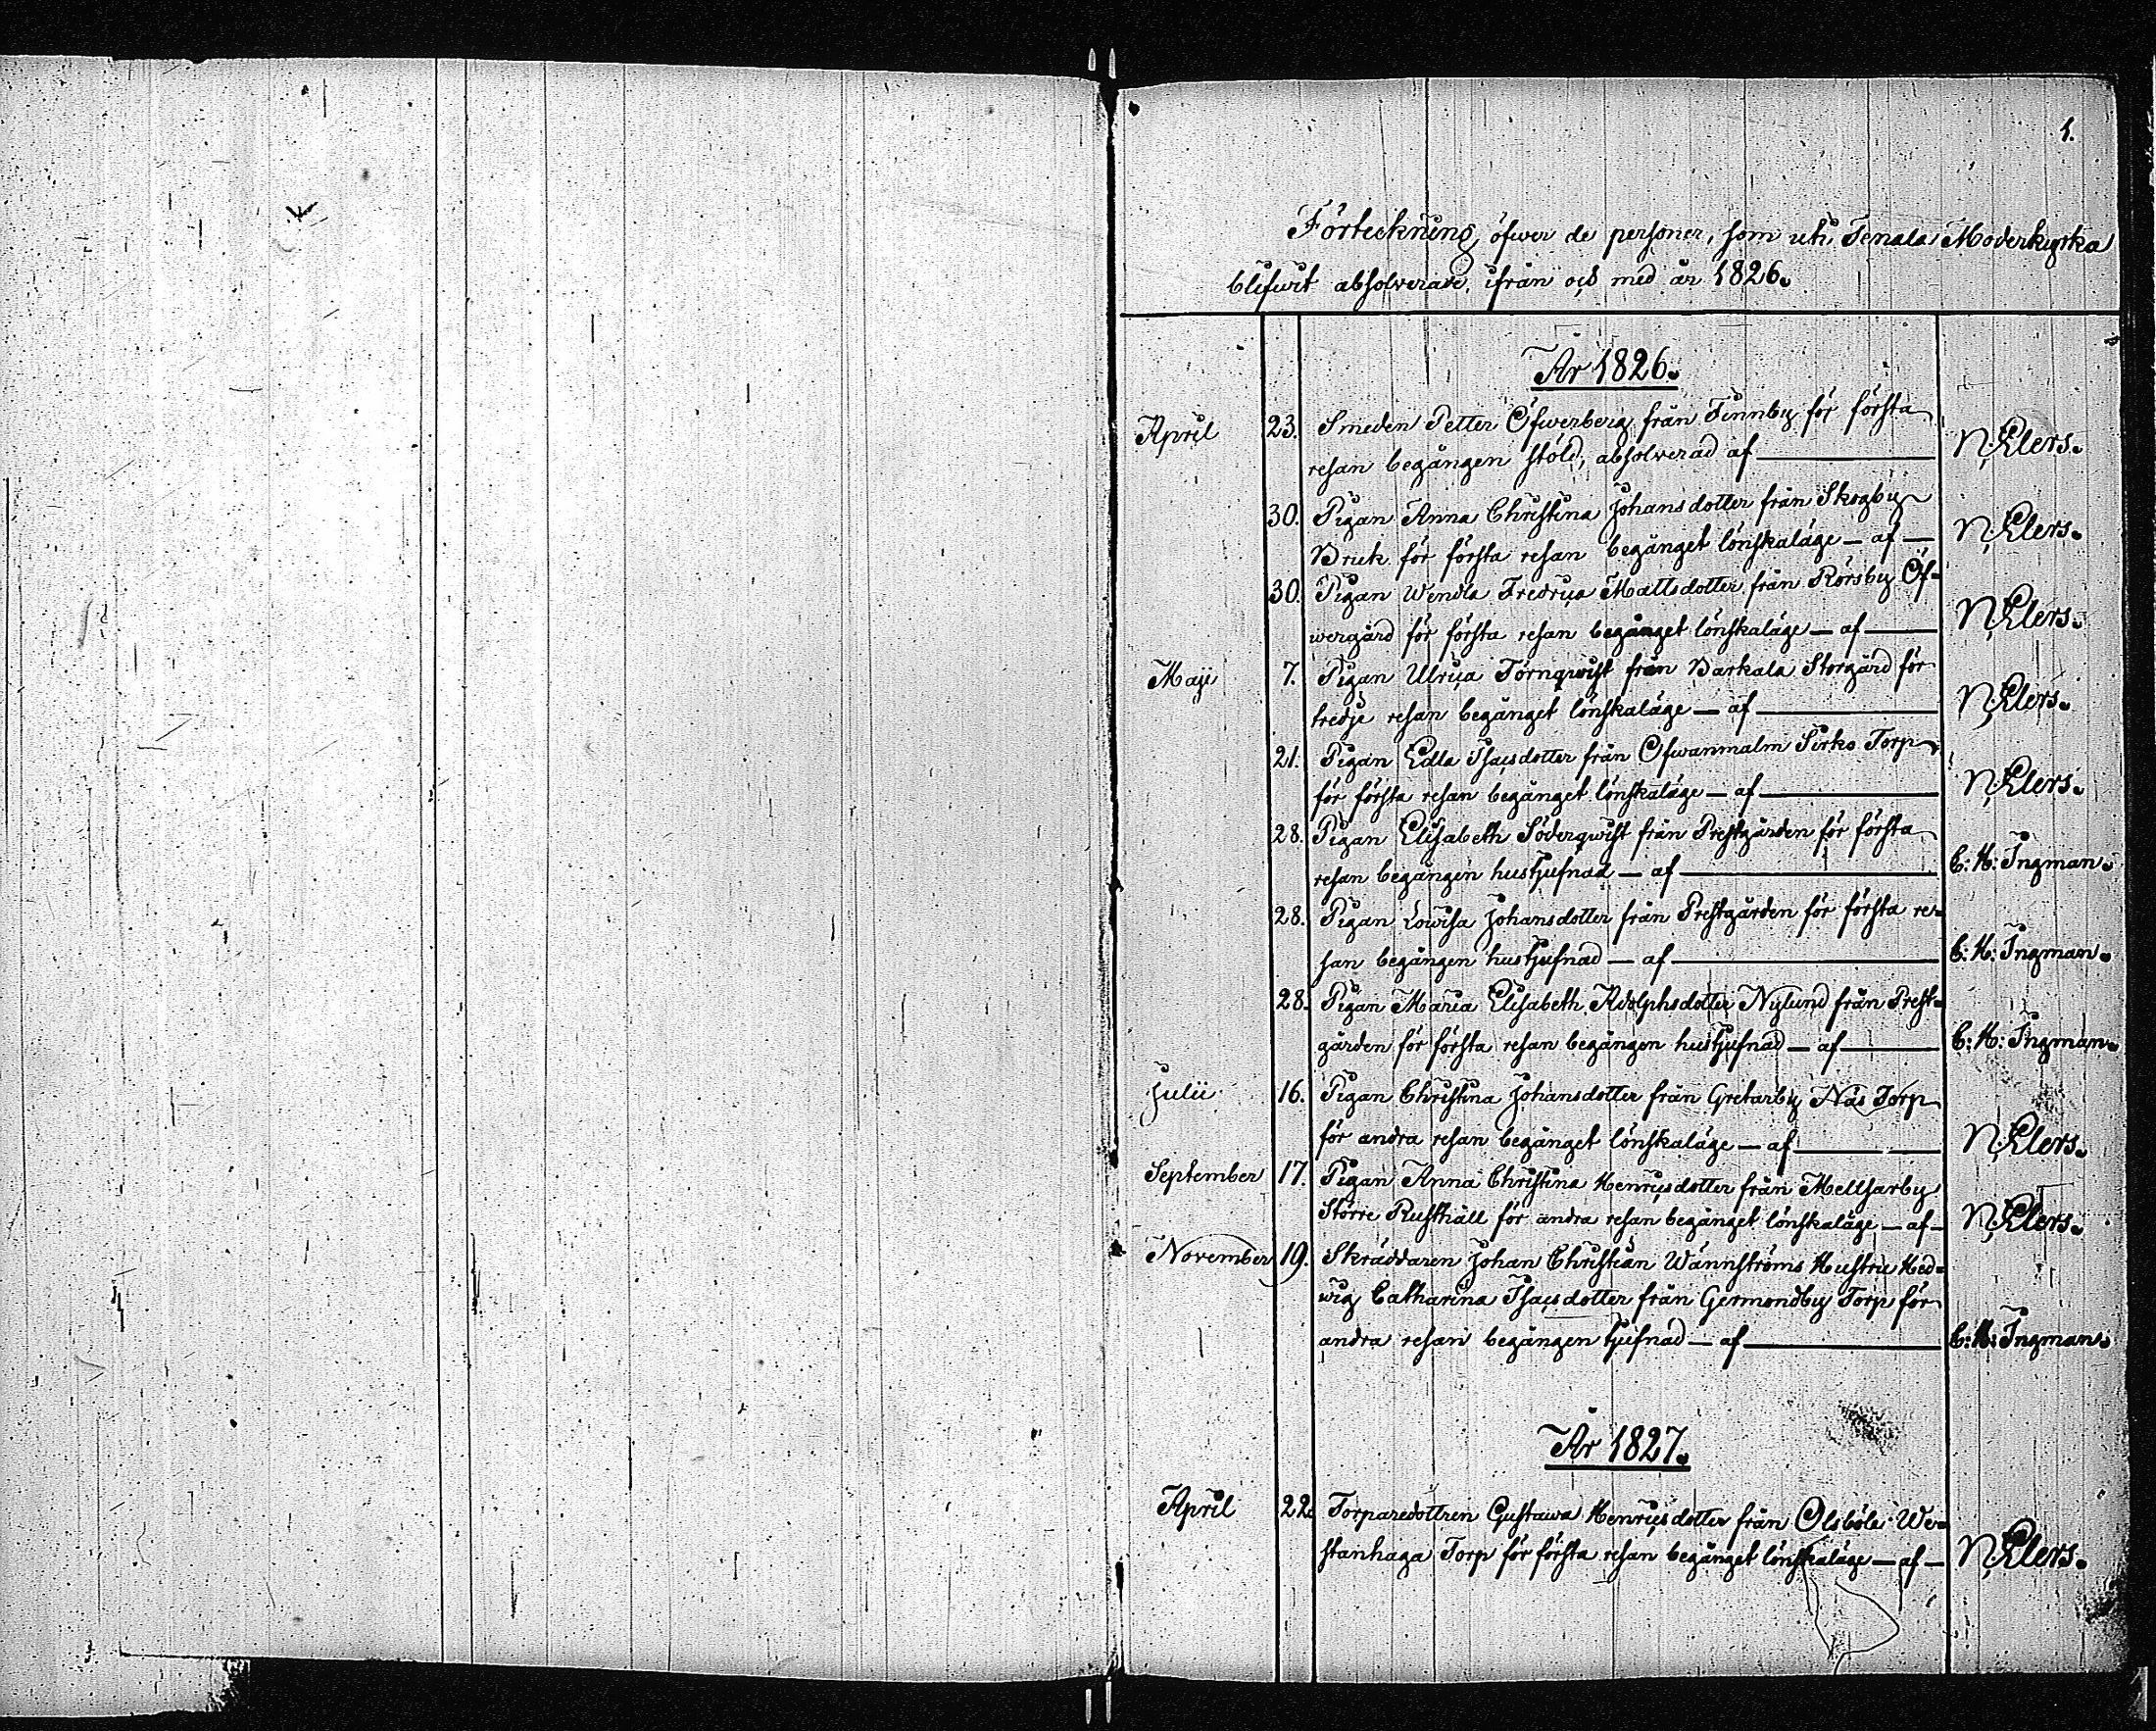 1.
Förteckning öfwer de personer, som uti Tenala Moderkyrka
blifwit absolverade, ifrån och med år 1826.
År 1826.
April 23. Smeden Petter Öfwerberg från Finnby för första
resan begången stöld, absolverad af — N. Elers.
30. Pigan Anna Christina Johansdotter från Skogby
Bruk för första resan begånget lönskaläge — af — N. Elers.
30. Pigan Wendla Fredrica Mattsdotter från Rörsby Öf-
wergård för första resan begånget lönskaläge — af — N. Elers.
Maji 7. Pigan Ulrica Törnqwist från Barkala Storgård för
tredje resan begånget lönskaläge — af — N. Elers.
21. Pigan Edla Isacsdotter från Ofwanmalm Sirko Torp
för första resan begånget lönskaläge — af — N. Elers.
28. Pigan Elisabeth Söderqwist från Prestgården för första
resan begången hustjufnad — af — C: H: Ingman.
28. Pigan Lowisa Johansdotter från Prestgården för första re-
san begången hustjufnad — af — C: H: Ingman.
28. Pigan Maria Elisabeth Adolphsdotter Nylund från Prest-
gården för första resan begången hustjufnad — af — C: H: Ingman.
Julii 16. Pigan Christina Johansdotter från Gretarby Näs Torp
för andra resan begånget lönskaläge — af — N. Elers.
September 17. Pigan Anna Christina Henricsdotter från Mellsarby
Större Rusthåll för andra resan begånget lönskaläge — af — N. Elers.
November 19. Skräddaren Johan Christian Wännströms Hustru Hed-
wig Catharina Isacsdotter från Germondby Torp för
andra resan begången tjufnad — af — C: H: Ingman.
År 1827.
April 22. Torparedottren Gustawa Henricsdotter från Olsböle We-
stanhaga Torp för första resan begånget lönskaläge — af — N. Elers.